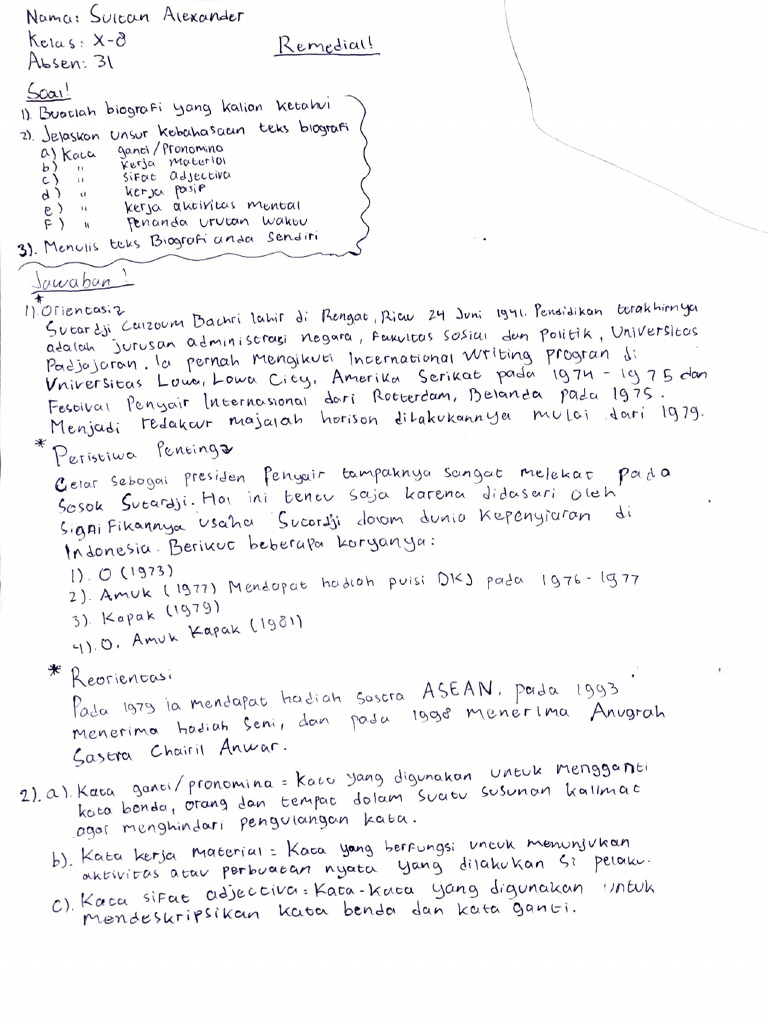 Nama: Sultan Alexander
Kelas: X-8
Remedial!
Absen: 31
Soal!
1). Buatlah biografi yang kalian ketahui
2). Jelaskan unsur kebahasaan teks biografi
a) Kata ganti/Pronomina
b) " kerja material
c) " sifat adjectiva
d) " kerja pasif
e) " kerja aktivitas mental
F) " Penanda urutan waktu
3). Menulis teks Biografi anda sendiri
Jawaban!
1). * Orientasi:
Sutardji Calzoum Bachri lahir di Rengat, Riau 24 Juni 1941. Pendidikan terakhirnya
adalah jurusan administrasi negara, Fakultas Sosial dan Politik, Universitas
Padjajaran. Ia pernah Mengikuti International Writing progran di
Universitas Lowa, Lowa City, Amerika Serikat pada 1974 - 1975 dan
Festival Penyair Internasional dari Rotterdam, Belanda pada 1975.
Menjadi redaktur majalah horison dilakukannya mulai dari 1979.
* Peristiwa Penting:
Gelar sebagai presiden Penyair tampaknya sangat melekat pada
Sosok Sutardji. Hal ini tentu saja karena didasari oleh
Signifikannya usaha Sutardji dalam dunia Kepenyiaran di
Indonesia. Berikut beberapa karyanya:
1). O (1973)
2). Amuk (1977) Mendapat hadiah puisi DKJ pada 1976-1977
3). Kapak (1979)
4). O, Amuk Kapak (1981)
* Reorientasi
Pada 1979 ia mendapat hadiah Sastra ASEAN, pada 1993
menerima hadiah Seni, dan pada 1998 menerima Anugrah
Sastra Chairil Anwar.
2). a). Kata ganti/pronomina = Kata yang digunakan untuk mengganti
kata benda, orang dan tempat dalam suatu susunan kalimat
agar menghindari pengulangan kata.
b). Kata kerja Material = Kata yang berfungsi untuk menunjukan
aktivitas atau perbuatan nyata yang dilakukan Si pelaku.
c). Kata sifat adjectiva = Kata-kata yang digunakan untuk
mendeskripsikan kata benda dan kata ganti.